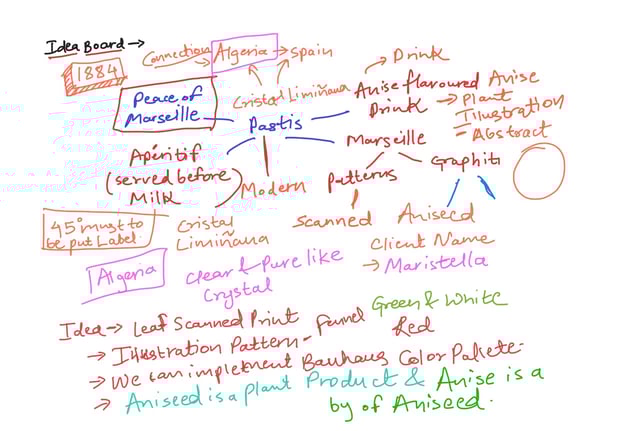 Idea Board →
1884
Connection → Algeria → Spain
Drink
Cristal Limiñana
Peace of
Marseille
Pastis
Anise flavoured
Drink
Anise
→ Plant
Illustration
- Abstract
Marseille
Apéritif
(served before
Milk
Modern
Patterns
Graphiti
45° must to
be put Label
Cristal
Limiñana
Scanned
Aniseed
Algeria
Clear & Pure like
Crystal
Client Name
→ Maristella
Idea → Leaf Scanned Print
Green & White
Red
→ Illustration Pattern - Funnel
→ We can implement Bauhaus Color Pallete-
→ Aniseed is a Plant Product & Anise is a
by of Aniseed.